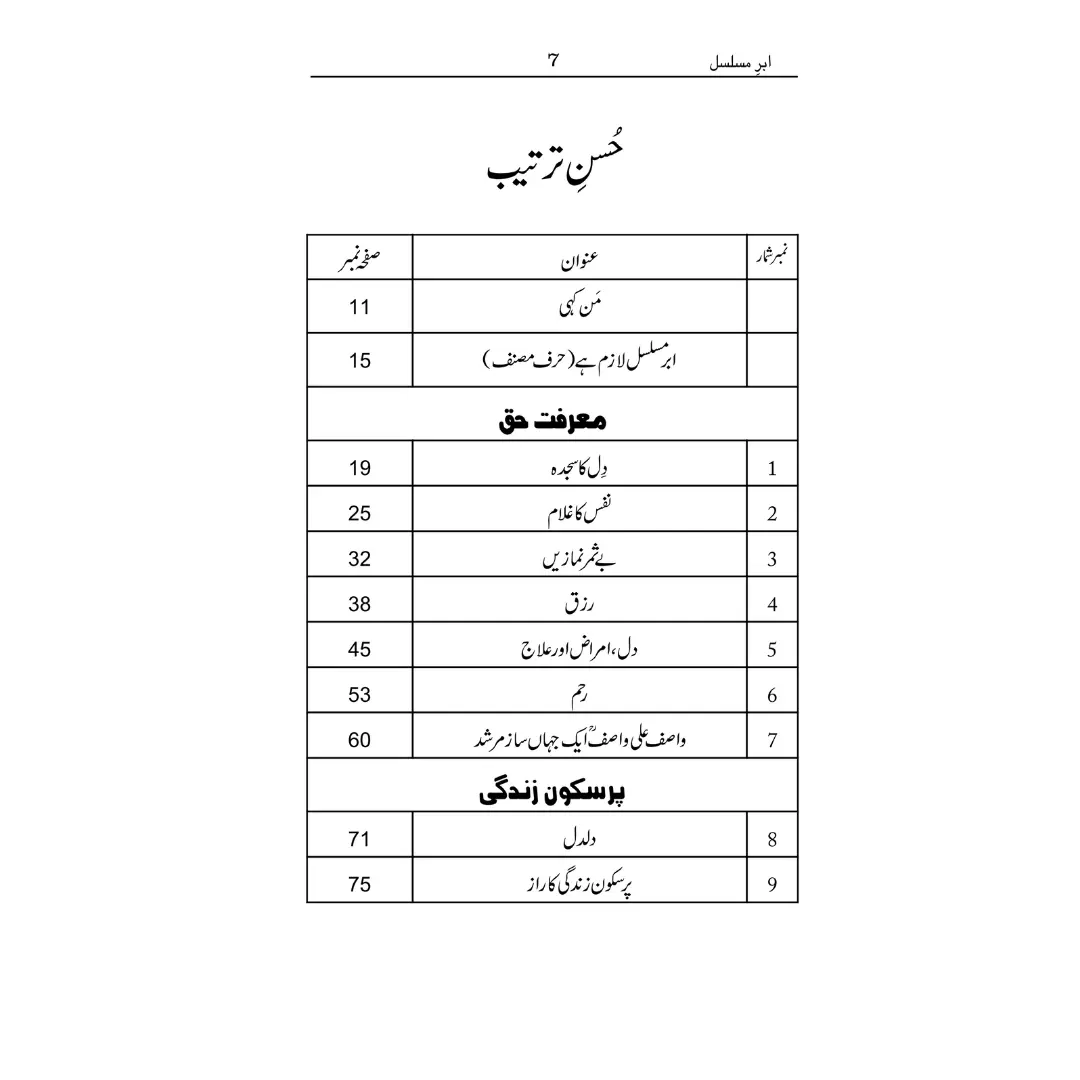 ابرِ مسلسل 7
حُسنِ ترتیب
نمبر شمار عنوان صفحہ نمبر
مَن کہی 11
ابر مسلسل لازم ہے (حرف مصنف) 15
معرفت حق
1 دِل کا سجدہ 19
2 نفس کا غلام 25
3 بے ثمر نمازیں 32
4 رزق 38
5 دل، امراض اور علاج 45
6 رحم 53
7 واصف علی واصفؒ ایک جہاں ساز مرشد 60
پرسکون زندگی
8 دلدل 71
9 پرسکون زندگی کا راز 75